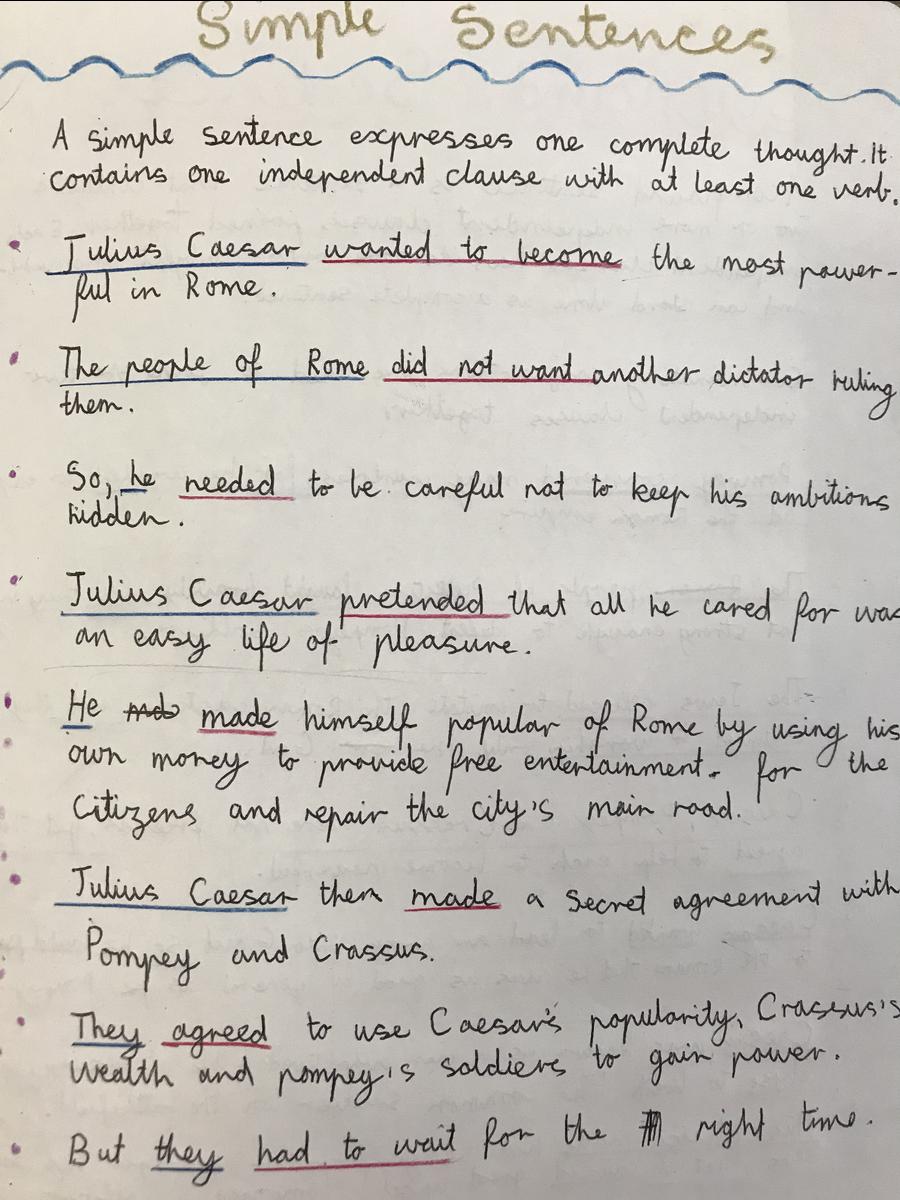 Simple Sentences
A simple sentence expresses one complete thought. It
contains one independent clause with at least one verb.
Julius Caesar wanted to become the most power-
ful in Rome.
The people of Rome did not want another dictator ruling
them.
So, he needed to be careful not to keep his ambitions
hidden.
Julius Caesar pretended that all he cared for was
an easy life of pleasure.
He made himself popular of Rome by using his
own money to provide free entertainment. for the
Citizens and repair the city's main road.
Julius Caesar them made a secret agreement with
Pompey and Crassus.
They agreed to use Caesar's popularity, Crassus's
wealth and pompey's soldiers to gain power.
But they had to wait for the right time.